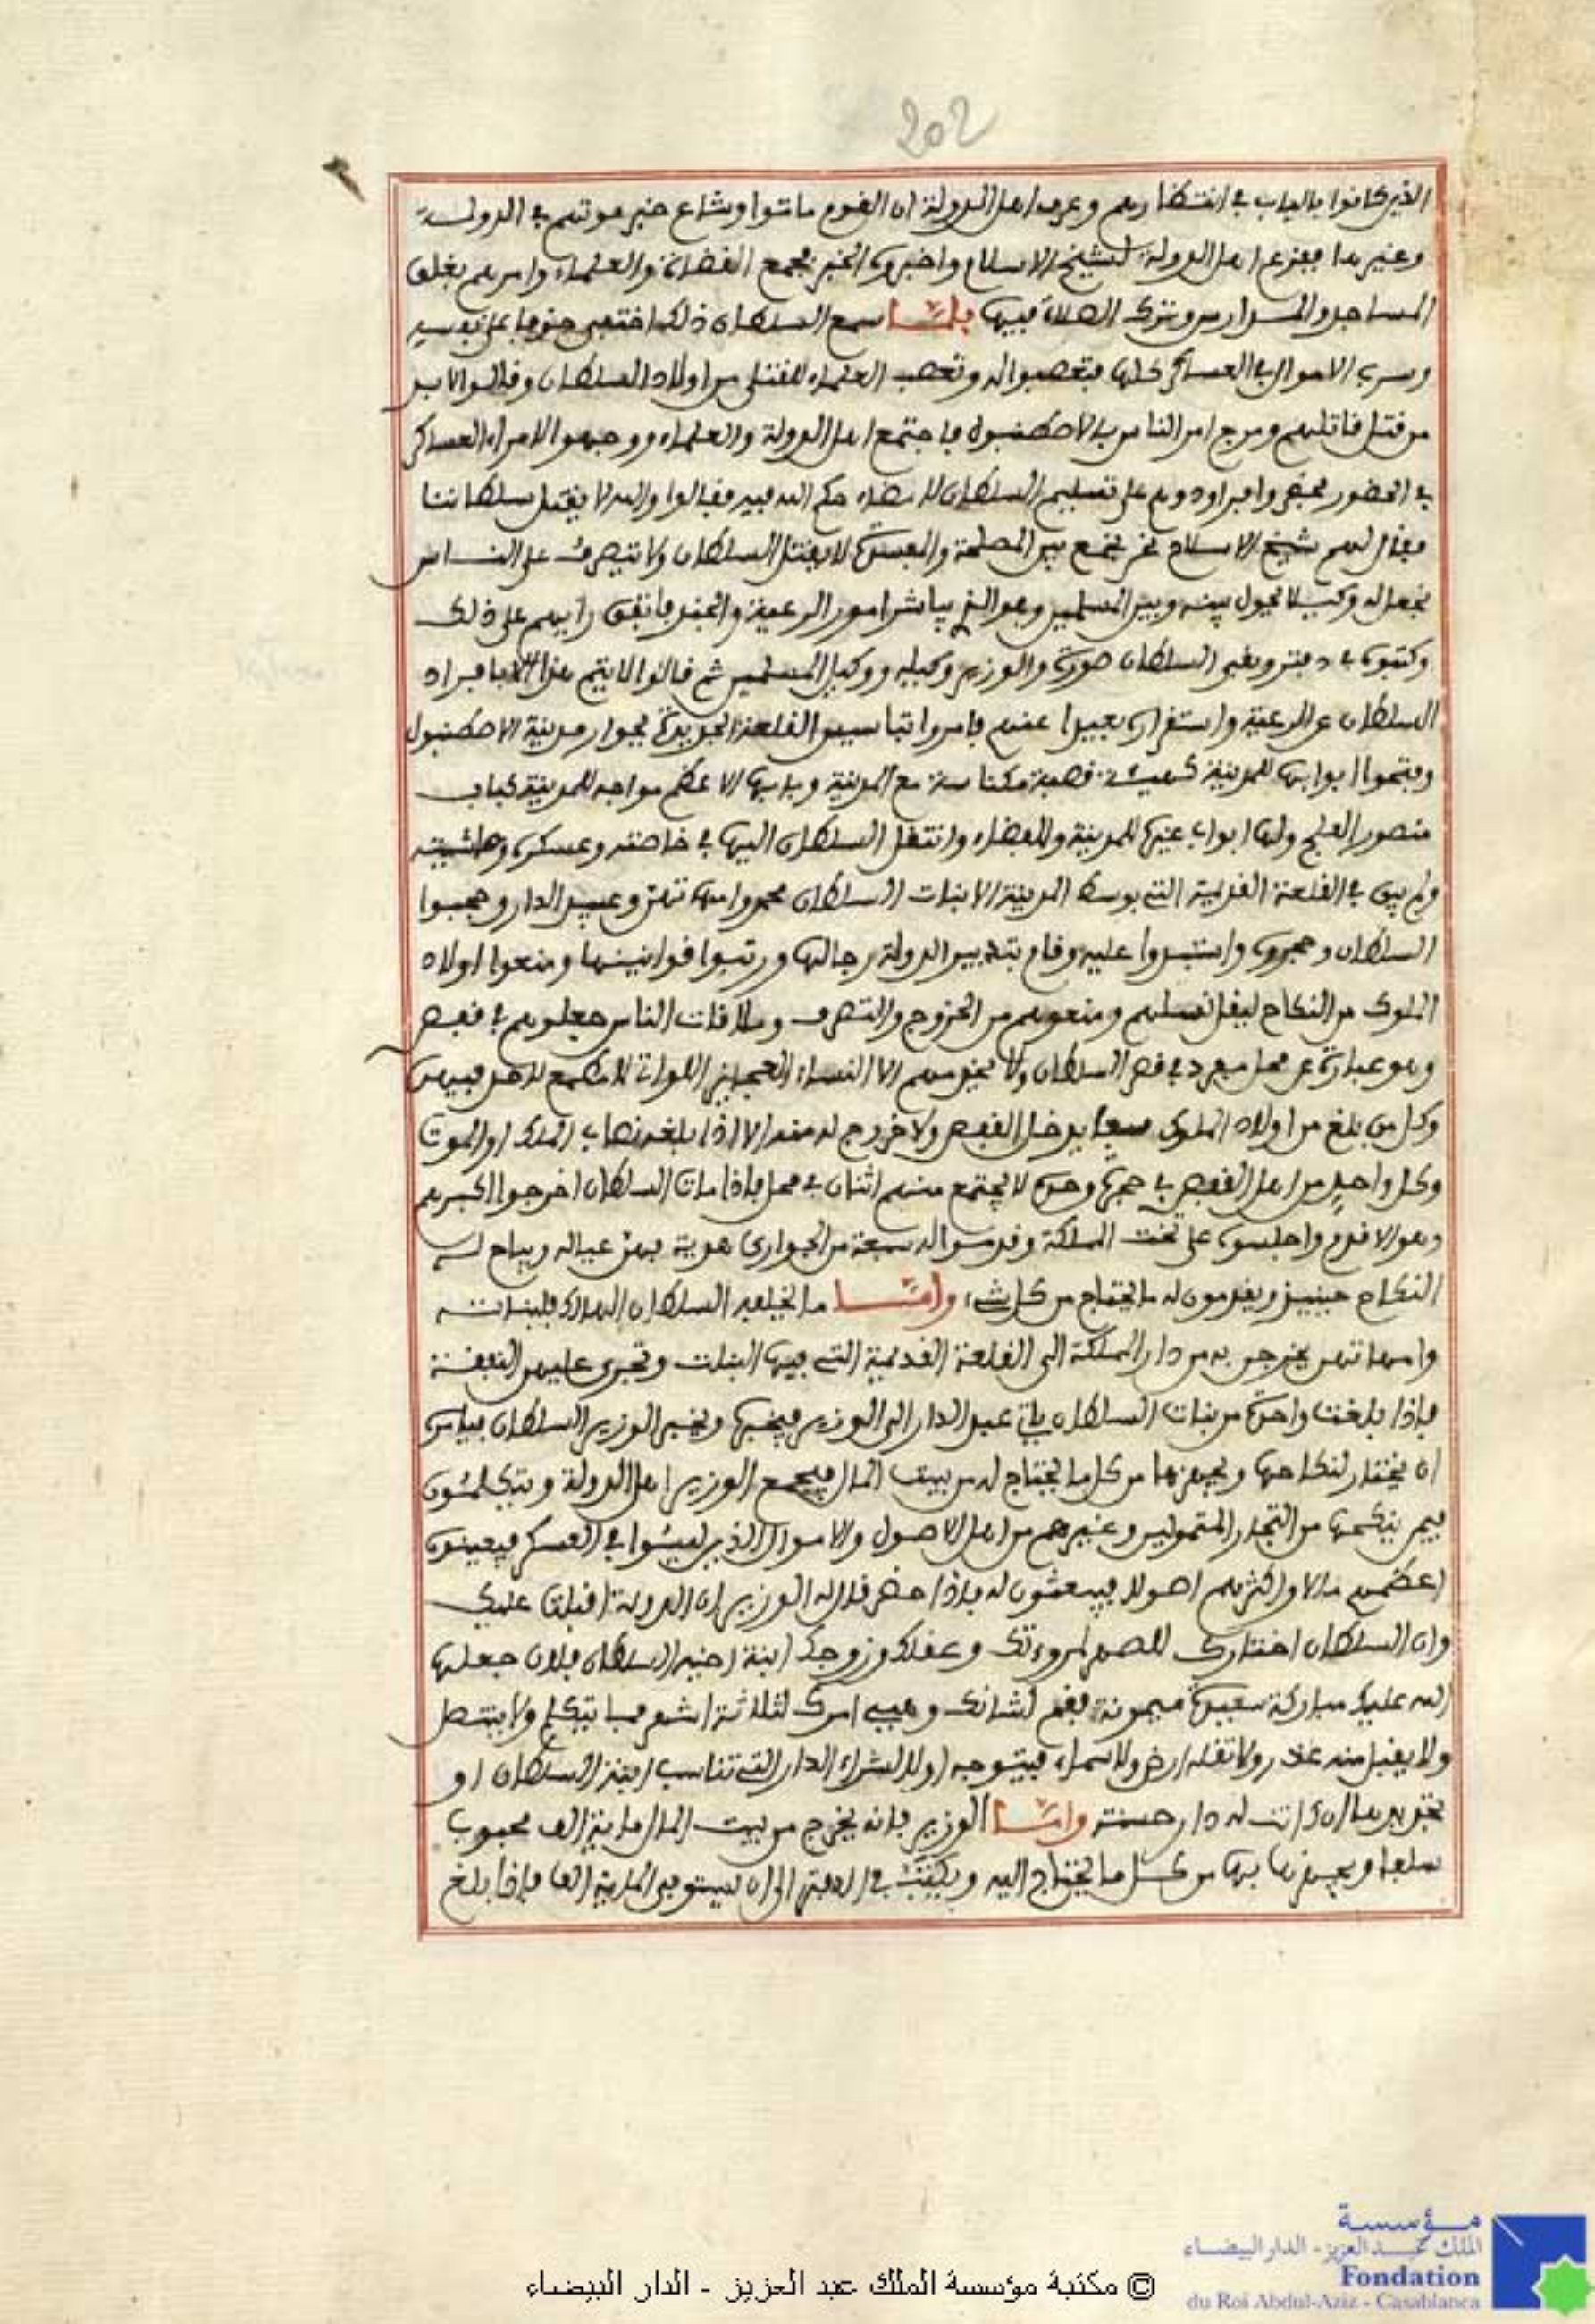 202
الذين كانوا بالباب في انتظارهم وعرف اهل الدولة ان القوم ماتوا وشاع خبر موتهم في الدولة
وغيرها ففزع اهل الدولة لشيخ الاسلام واخبروه الخبر فجمع القضاة والعلماء وامرهم بغلق
المساجد والمدارس وترك الصلاة فيها فلما سمع السلطان ذلك اختفى خوفا على نفسه
وسرب الاموال في العساكر كلها فتعصبوا له وتعصب العلماء للقتلى من اولاد السلطان وقالوا لا بد
من قتل قاتلهم ومرج امر الناس بالاصطنبول فاجتمع اهل الدولة والعلماء ووجهوا لامراء العساكر
في الحضور فحضروا فراودوهم على تسليم السلطان لامضاء حكم الله فيه فقالوا والله لا يقتل سلطاننا
فقال لهم شيخ الاسلام نحن نجمع بين المصلحة والمفسدة لا يقتل السلطان ولا يتصرف على الناس
نجعل له وكيلا يحول بينه وبين المسلمين وهو الذي يباشر امور الرعية والجند فاتفق رأيهم على ذلك
وكتبوه في دفتر وبقي السلطان صورة والوزير وكيله ووكيل المسلمين ثم قالوا لا يتم هذا الا بافراد
السلطان عن الرعية واستقراره بعيدا عنهم فامروا بتاسيس القلعة الجديدة بجوار مدينة الاصطنبول
وفتحوا ابوابها للمدينة كهيئة قصبة مكناسة مع المدينة وبابها الاعظم مواجه للمدينة كباب
منصور العلج ولها ابواب غيرها للمدينة وللفضاء وانتقل السلطان اليها في خاصته وعسكره وحاشيته
ولم يبق في القلعة القديمة التي بوسط المدينة الا بنات السلطان محمد وامهاتهن وعبيد الدار وحجبوا
السلطان وحجروه واستبدوا عليه وقام بتدبير الدولة رجالها ورتبوا قوانينها ومنعوا اولاد
الملوك من النكاح ليقل نسلهم ومنعوهم من الخروج والتصرف وملاقات الناس جعلوهم في قفص
وهو عبارة عن محل مفرد في قصر السلطان ولا يخدمهم الا النساء العجايز اللواتي لا مطمع لاحد فيهن
وكل من بلغ من اولاد الملوك سبعا يدخل القفص ولا خروج له منه الا اذا بلغه نصاب الملك او الموت
وكل واحد من اهل القفص في حجرة وحده لا يجتمع منهم اثنان في محل فاذا مات السلطان اخرجوا اكبرهم
وهو الاقدم واجلسوه على تخت المملكة وقدموا له سبعة من الجواري هدية فهن عياله ويباح له
النكاح حينيذ ويقدمون له ما يحتاج من كل شيء واما ما يخلفه السلطان الهالك فلبناته
وامهاتهن يخرجن به من دار المملكة الى القلعة القديمة التي فيها البنات وتجرى عليهن النفقة
فاذا بلغت واحدة من بنات السلطان ياتي عبد الدار الى الوزير فيخبره ويخبر الوزير السلطان فيامره
ان يختار لنكاحها ويجهزها من كل ما يحتاج له من بيت المال فيجمع الوزير اهل الدولة ويتكلمون
فيمن ينكحها من التجار المتمولين وغيرهم من اهل الاصول والاموال الذين ليسوا في العسكر فيعينون
اعظمهم مالا واكثرهم اصولا فيبعثون له فاذا حضر قال له الوزير ان الدولة اقبلت عليك
وان السلطان اختارك للصهر لمروءتك وعقلك وزوجك ابنة اخيه السلطان فلان جعلها
الله عليك مباركة سعيدة ميمونة فقم لشانك وهييء امرك لثلاثة اشهر فما يتكلم ولا ينتصل
ولا يقبل منه عذر ولا تقله ارض ولا سماء فيتوجه اولا لشراء الدار التي تناسب ابنة السلطان او
تجديدها ان كانت له دار حسنة واما الوزير فانه يخرج من بيت المال ماية الف محبوب
سلفا ويجهزها بها من كل ما يحتاج اليه ويكتب في الدفتر الى ان يستوفى الماية الف فاذا بلغ
مؤسسة
الملك عبد العزيز - الدار البيضاء
Fondation
du Roi Abdul-Aziz - Casablanca
© مكتبة مؤسسة الملك عبد العزيز - الدار البيضاء